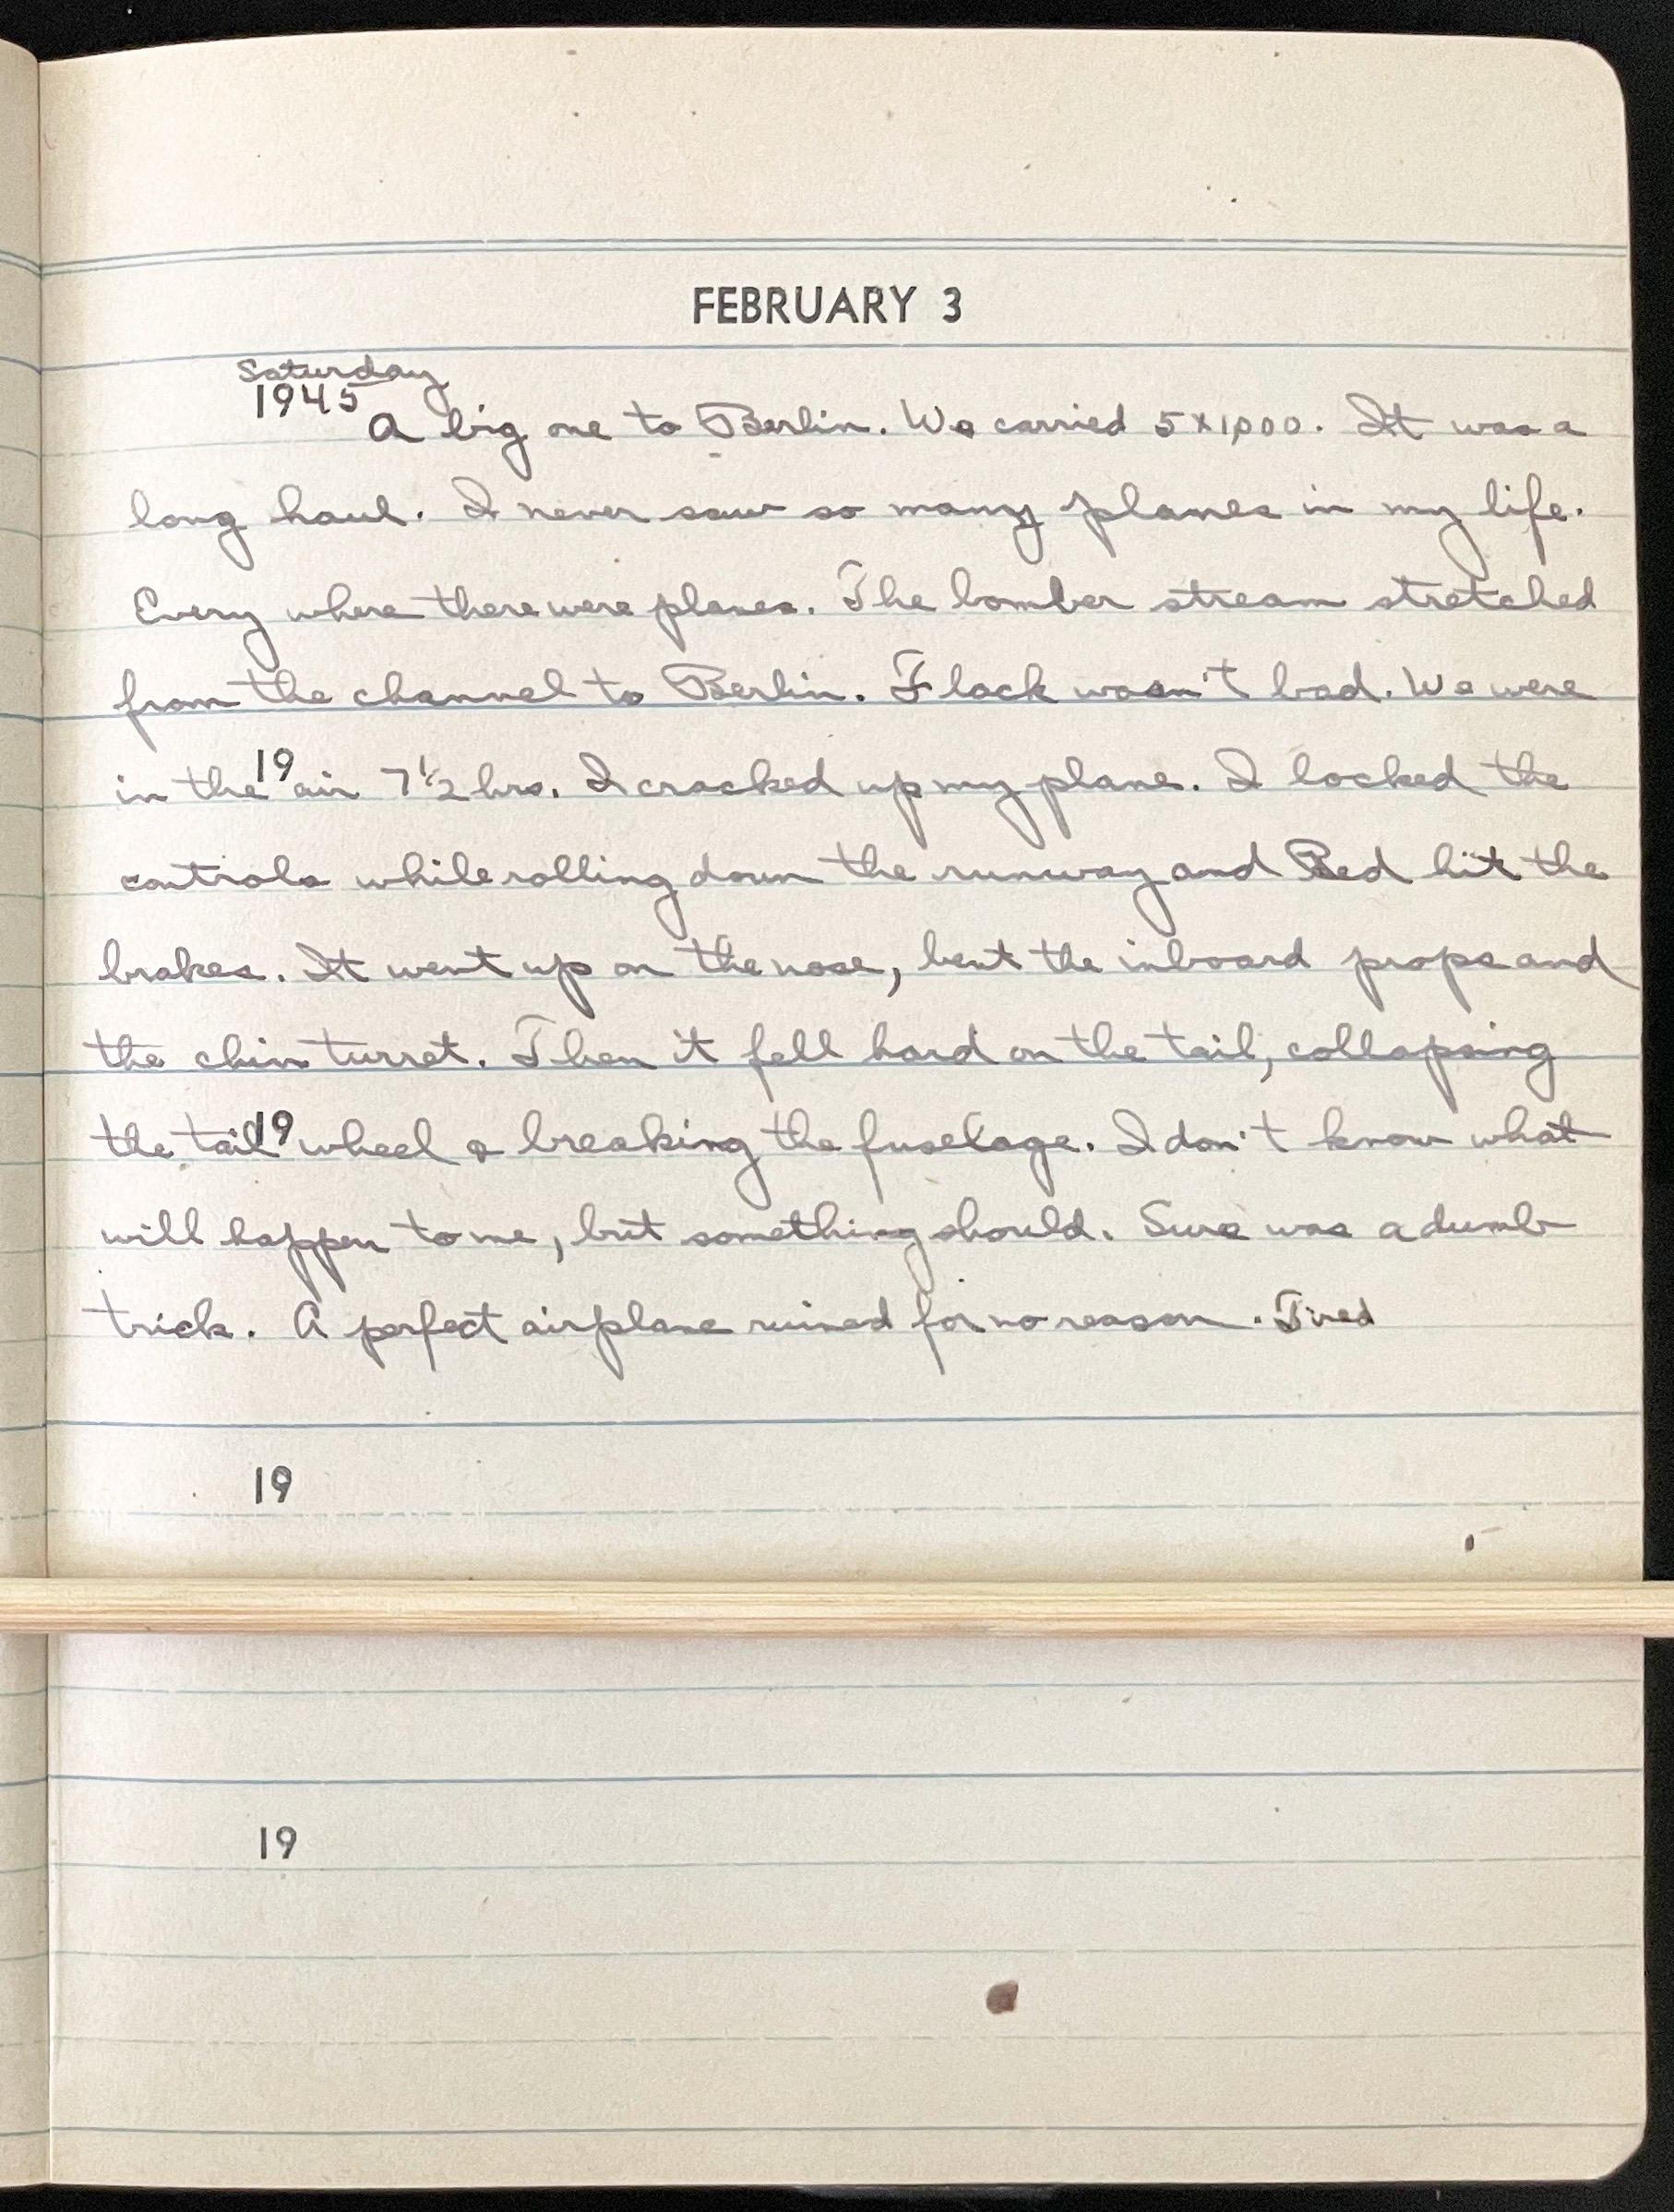 FEBRUARY 3
Saturday
1945
A big one to Berlin. We carried 5x1,000. It was a
long haul. I never saw so many planes in my life.
Every where there were planes. The bomber stream stretched
from the channel to Berlin. Flack wasn't bad. We were
in the 19 air 7 1/2 hrs. I cracked up my plane. I locked the
controls while rolling down the runway and Red hit the
brakes. It went up on the nose, bent the inboard props and
the chin turret. Then it fell hard on the tail, collapsing
the tail 19 wheel & breaking the fuselage. I don't know what
will happen to me, but something should. Sure was a dumb
trick. A perfect airplane ruined for no reason. Tired
19
19